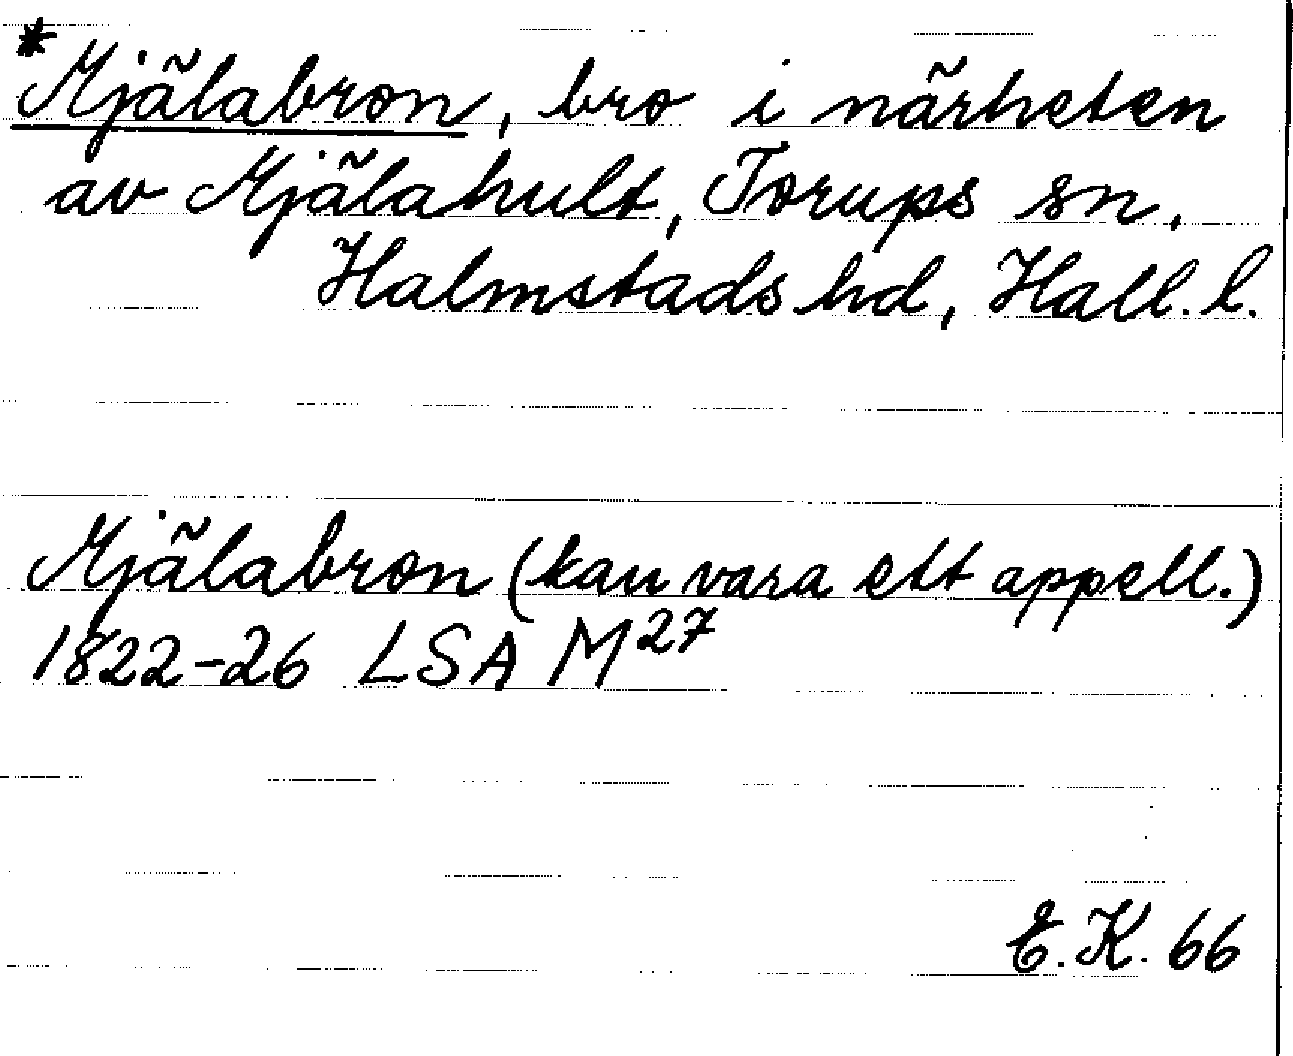 *Mjälabron, bro i närheten
av Mjälahult, Torups sn,
Halmstads hd, Hall. l.
Mjälabron (kan vara ett appell.)
1822-26 LSA M27
E.K. 66